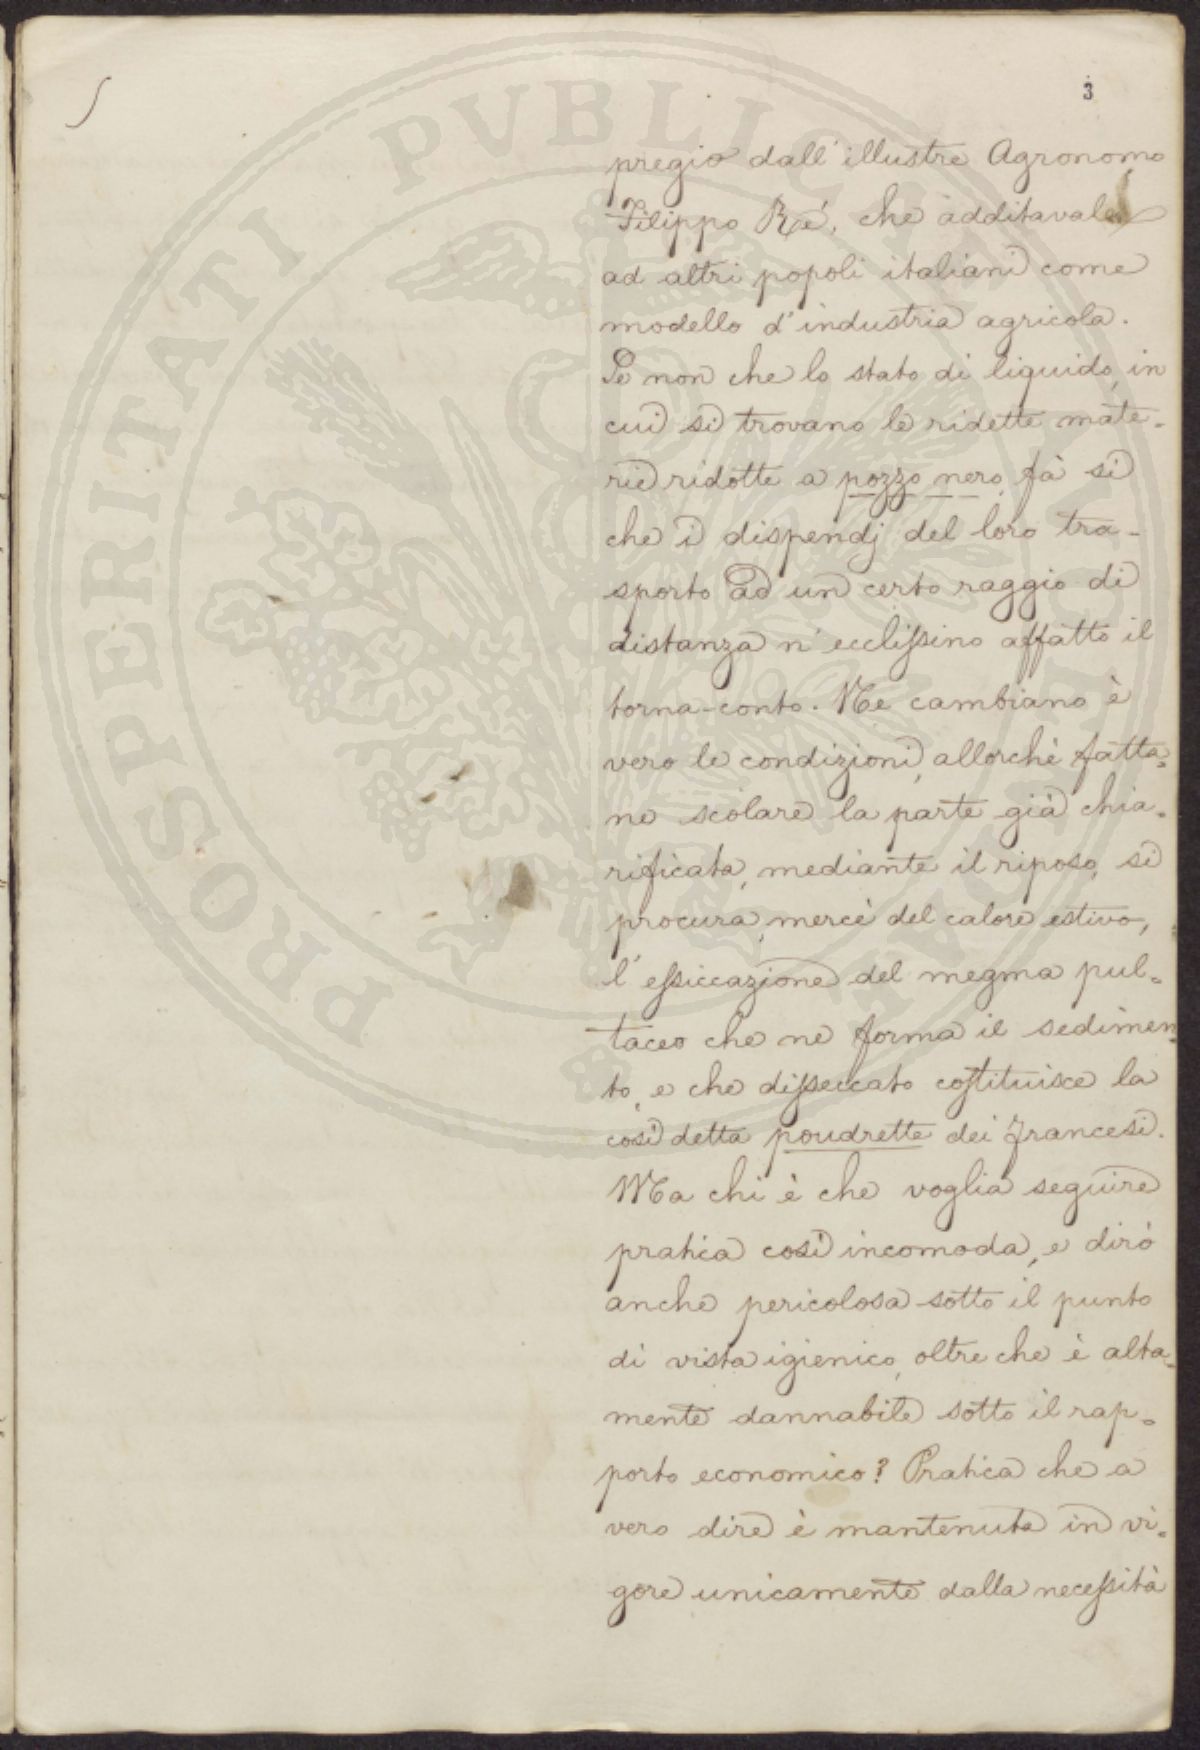 3
pregio dall'illustre Agronomo
Filippo Re, che additavale
ad altri popoli italiani come
modello d'industria agricola.
Se non che lo stato di liquido, in
cui si trovano le ridette mate-
rie ridotte a pozzo nero, fà si
che i dispendj del loro tra-
sporto ad un certo raggio di
distanza n'ecclissino affatto il
torna-conto. Ne cambiano è
vero le condizioni, allorchè fatta-
ne scolare la parte già chia-
rificata, mediante il riposo, si
procura, mercè del calore estivo,
l'essiccazione del megma pul-
taceo che ne forma il sedimen
to, e che disseccato costituisce la
così detta poudrette dei francesi.
Ma chi è che voglia seguire
pratica così incomoda, e dirò
anche pericolosa sotto il punto
di vista igienico, oltre che è alta-
mente dannabile sotto il rap-
porto economico? Pratica che a
vero dire è mantenuta in vi-
gore unicamente dalla necessità
PROSPERITATI PVBLICAE